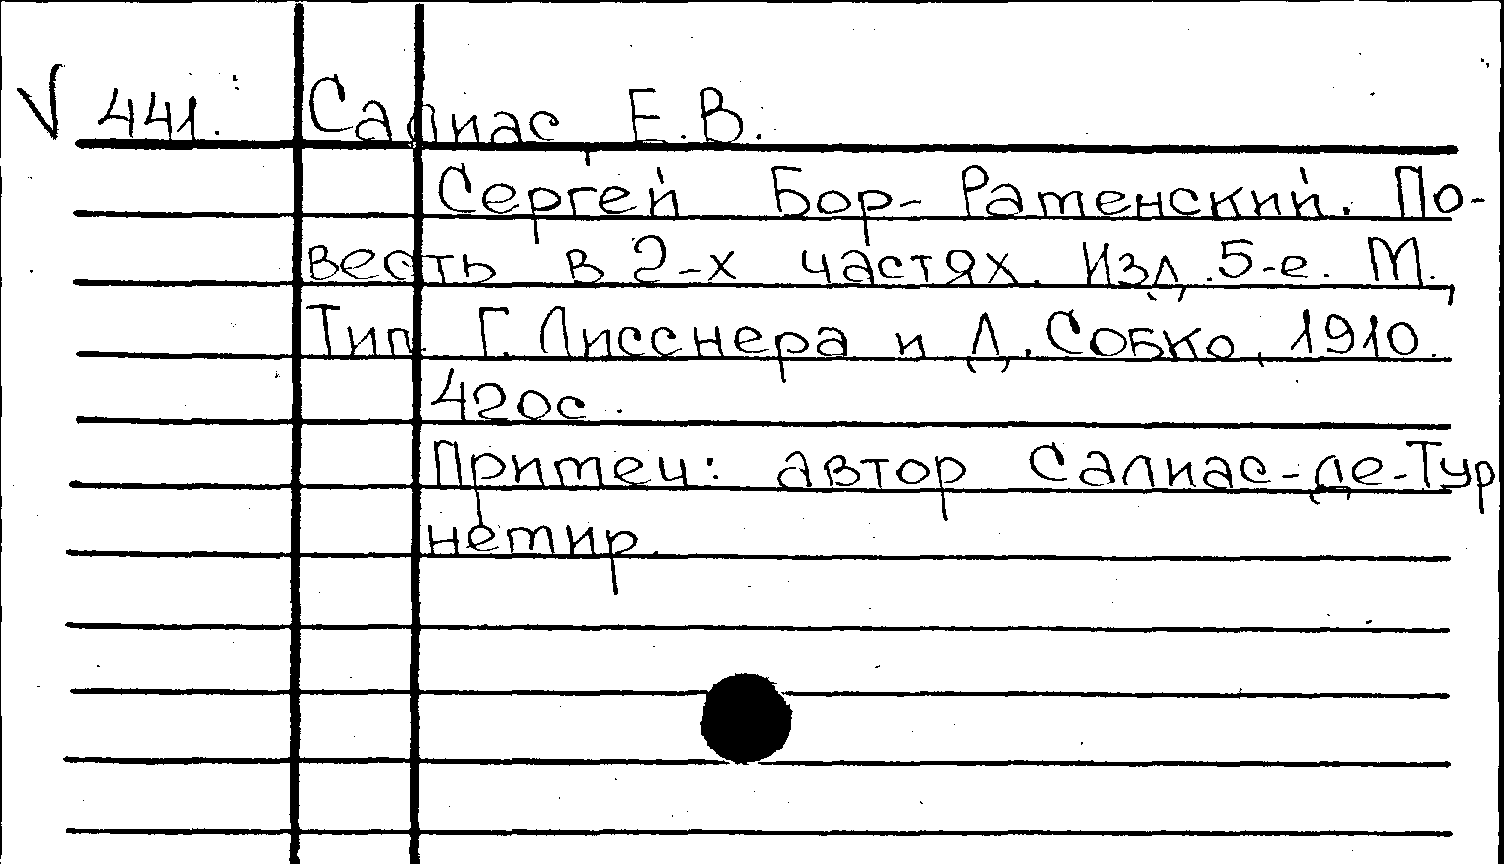 V 441. Салиас, Е.В.
Сергей Бор-Раменский. По-
весть в 2-х частях. Изд. 5-е. М.,
Тип. Г. Лисснера и Д. Собко, 1910.
420с.
Примеч: автор Салиас-де-Тур
немир.